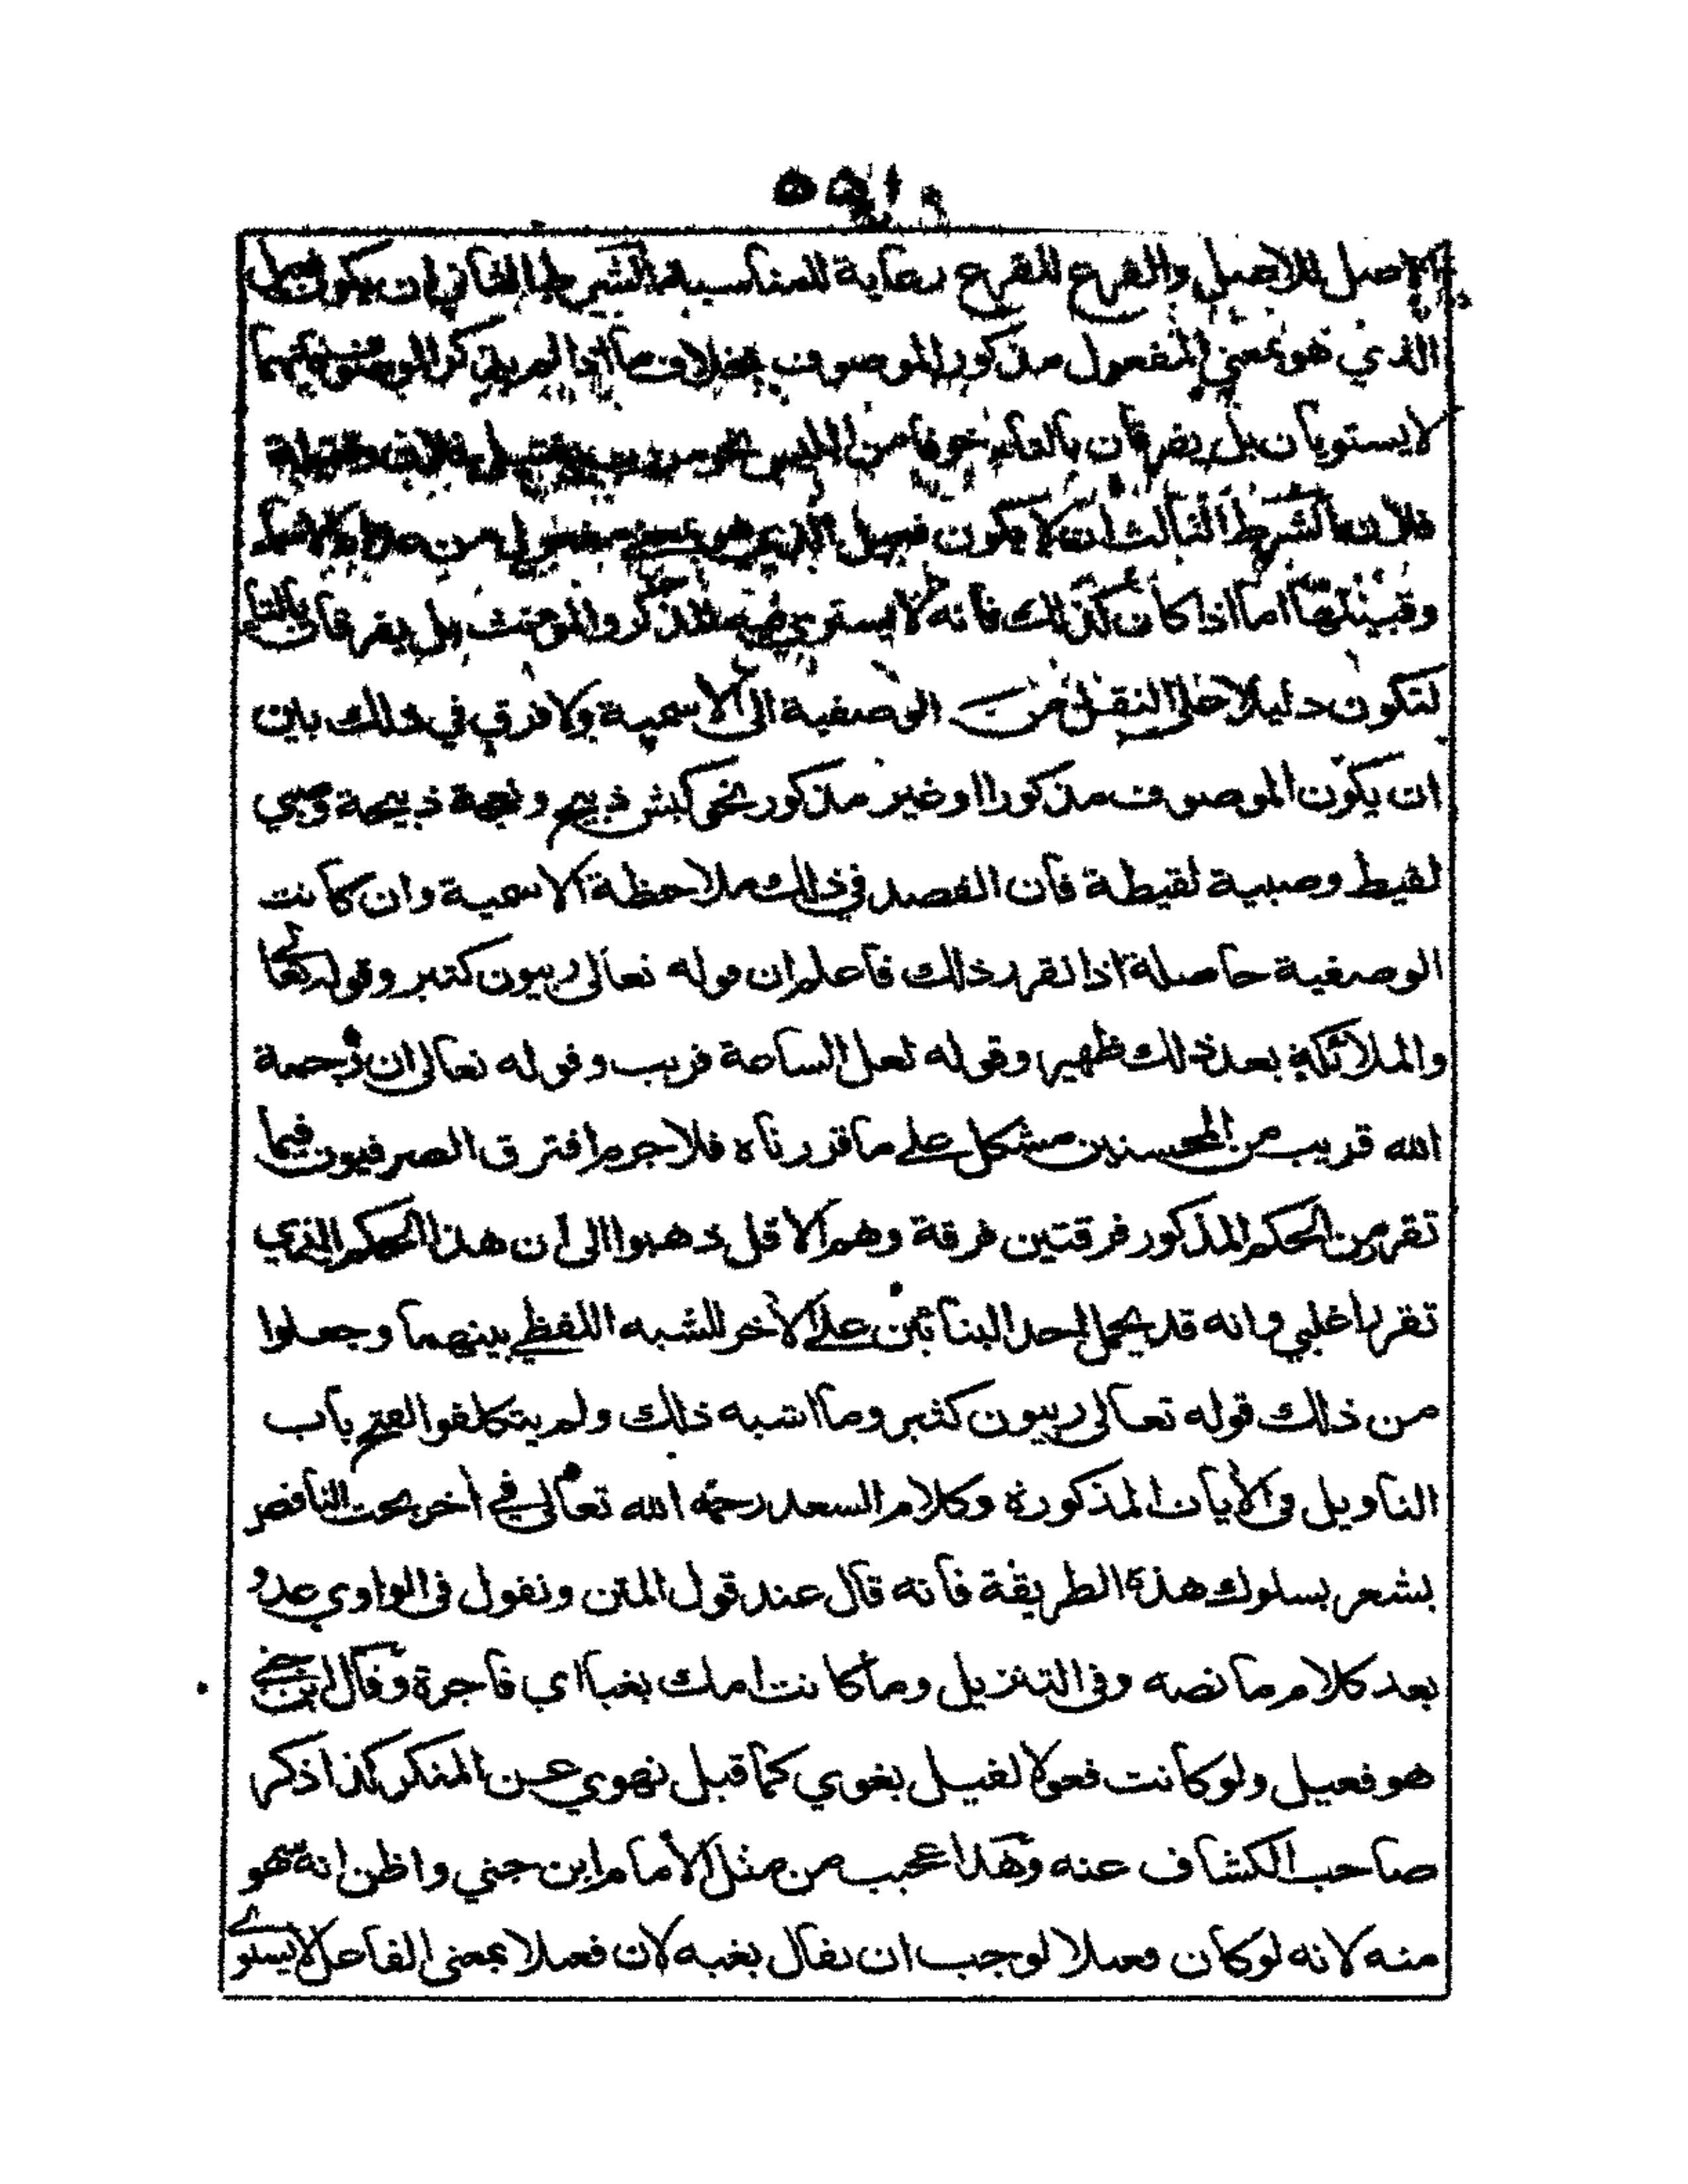 الاصل للاصل والفرع للفرع رعاية للمناسبة الشرط الثاني ان يكون فعيل
الذي هو بمعنى المفعول مذكور الموصوف بخلاف ما اذا لم يذكر الموصوف فانهما
لا يستويان بل يفرقان بالتاء خوفا من اللبس نحو مررت بقتيل فلان وقتيلة
فلان الشرط الثالث ان لا يكون فعيل الذي هو بمعنى مفعول من
اما اذا كان كذلك فانه لا يستوي فيه المذكر والمؤنث بل يفرقان بالتاء
لتكون دليلا على النقل من الوصفية الى الاسمية ولا فرق في ذلك بين
ان يكون الموصوف مذكورا او غير مذكور نحو كبش ذبيح ونعجة ذبيحة وصبي
لقيط وصبية لقيطة فان القصد في ذلك ملاحظة الاسمية وان كانت
الوصفية حاصلة اذا تقرر ذلك فاعلم ان قوله تعالى ربيون كثير وقوله تعالى
والملائكة بعد ذلك ظهير وقوله لعل الساعة قريب وقوله تعالى ان رحمة
الله قريب من المحسنين مشكل على ما قررناه فلا جرم افترق الصرفيون فيما
تقرر من الحكم المذكور فرقتين فرقة وهم الاقل ذهبوا الى ان هذا الحكم الذي
تقرر اغلبي وانه قد يحمل احد البنائين على الاخر للشبه اللفظي بينهما وجعلوا
من ذلك قوله تعالى ربيون كثير وما اشبه ذلك ولم يتكلفوا لفتح باب
التاويل في الايات المذكورة وكلام السعد رحمه الله تعالى في اخر بحث الناقص
يشعر بسلوك هذه الطريقة فانه قال عند قول المتن ونقول في الواوي عدو
بعد كلام ما نصه وفي التنزيل وما كانت امك بغيا اي فاجرة وقال ابن جني
هو فعيل ولو كانت فعولا لقيل بغوي كما قيل نهوي عن المنكر كذا ذكر
صاحب الكشاف عنه وهذا عجيب من مثل الامام ابن جني واظن انه سهو
منه لانه لو كان فعيلا لوجب ان يقال بغية لان فعيلا بمعنى الفاعل لا يستوي